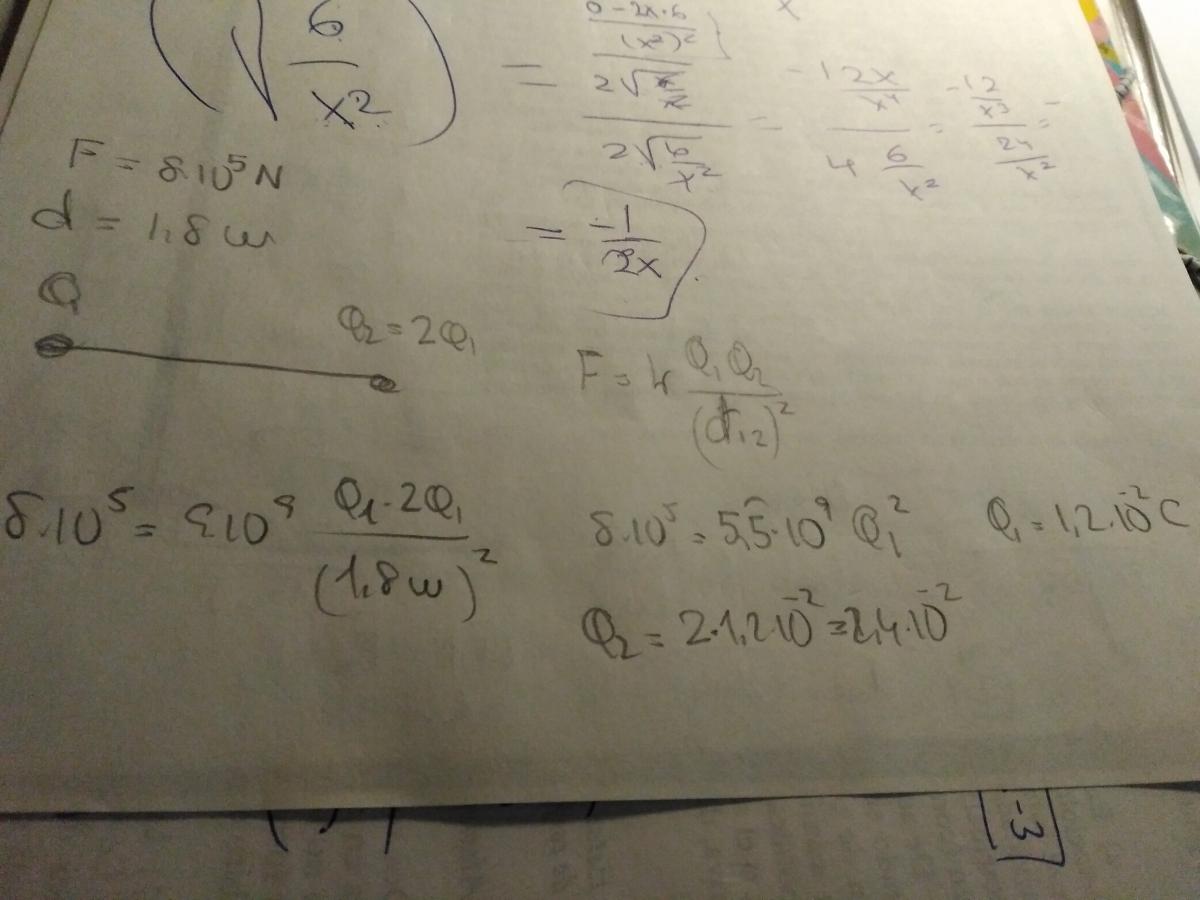 (√ 6/x²) = 0 - 2x·6 / (x²)² / 2√ 6/x² / 2√ 6/x² = -12x/x⁴ / 4 6/x² = -12/x³ / 24/x² =
F = 8·10⁵ N
d = 1,8 m
= -1/2x
Q₁
Q₂ = 2Q₁
F = k Q₁Q₂/(d₁₂)²
8·10⁵ = 9·10⁹ Q₁·2Q₁/(1,8m)² 8·10⁵ = 5,5·10⁹ Q₁² Q₁ = 1,2·10⁻² C
Q₂ = 2·1,2·10⁻² = 2,4·10⁻²
-3